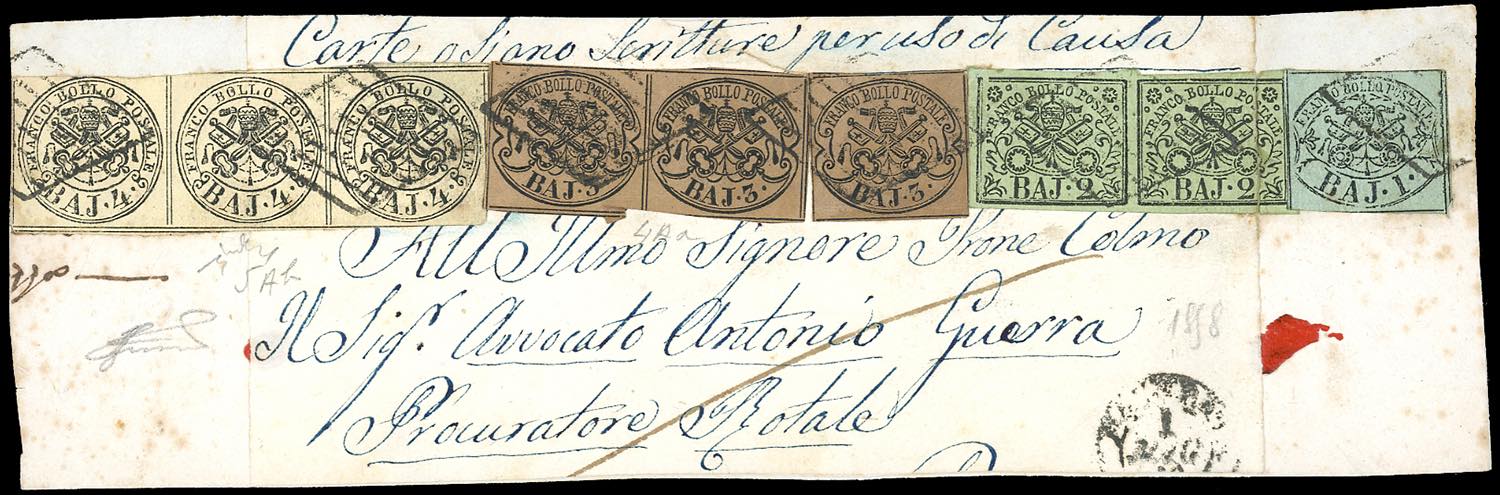 Carte osiano Scritture per uso di Causa
FRANCO BOLLO POSTALE BAJ·4· FRANCO BOLLO POSTALE BAJ·4· FRANCO BOLLO POSTALE BAJ·4· FRANCO BOLLO POSTALE BAJ·3· FRANCO BOLLO POSTALE BAJ·3· FRANCO BOLLO POSTALE BAJ·3· FRANCO BOLLO POSTALE BAJ·2 FRANCO BOLLO POSTALE BAJ·2 FRANCO BOLLO POSTALE BAJ·1·
4Aa
All Illmo Signore Prone Colmo
5Ab
Il Sigr. Avvocato Antonio Guerra
1858
Procuratore Rotale
1